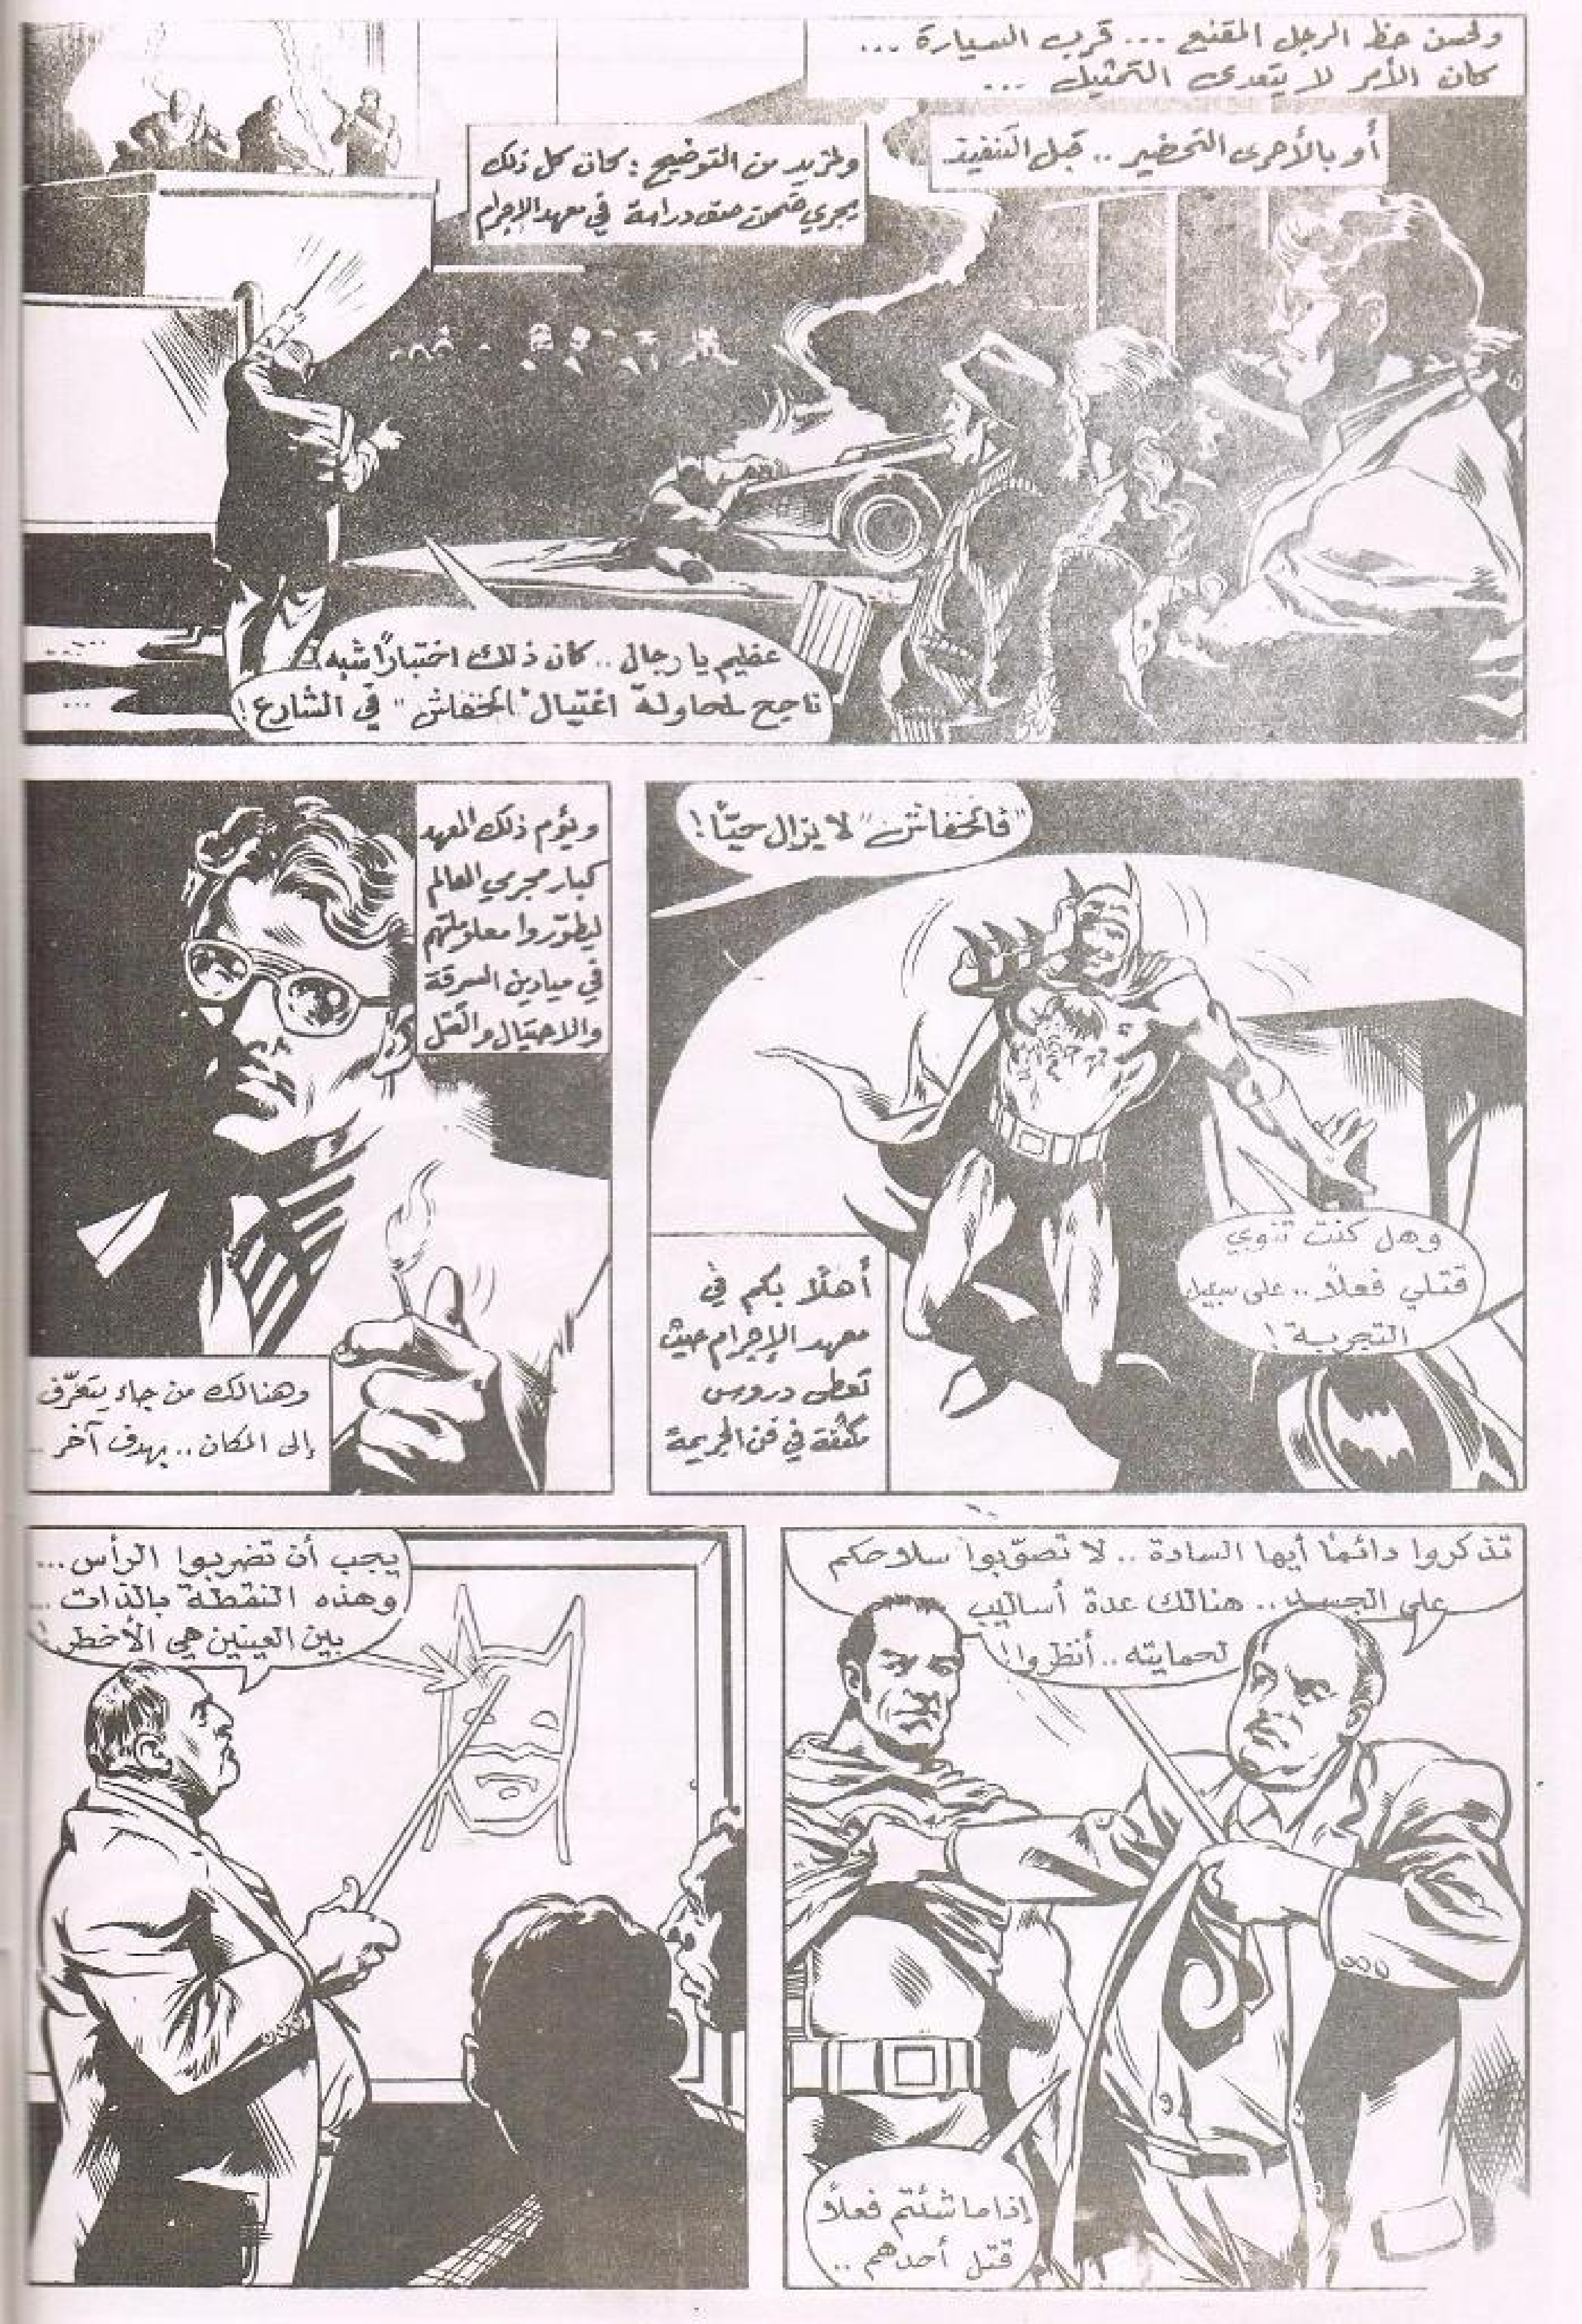 ولحسن حظ الرجل المقنع ... قرب السيارة ...
كان الأمر لا يتعدى التمثيل ...
أو بالأحرى التحضير .. قبل التنفيذ
ولمزيد من التوضيح : كان كل ذلك
يجري ضمن صف دراسة في معهد الإجرام
عظيم يا رجال .. كان ذلك اختباراً شبه
ناجح لمحاولة اغتيال "الخفاش" في الشارع !
...
"فالخفاش" لا يزال حيّاً !
وهل كنت تنوي
قتلي فعلاً .. على سبيل
التجربة !
أهلاً بكم في
معهد الإجرام حيث
تعطى دروس
مكثفة في فن الجريمة
ويؤم ذلك المعهد
كبار مجرمي العالم
ليطوّروا معلوماتهم
في ميادين السرقة
والاحتيال والقتل
وهنالك من جاء يتعرّف
إلى المكان .. بهدف آخر ..
تذكروا دائماً أيها السادة .. لا تصوّبوا سلاحكم
على الجسد .. هنالك عدة أساليب
لحمايته .. أنظروا !
إذا ما شئتم فعلاً
قتل أحدهم ..
يجب أن تضربوا الرأس ...
وهذه النقطة بالذات ..
بين العينين هي الأخطر !